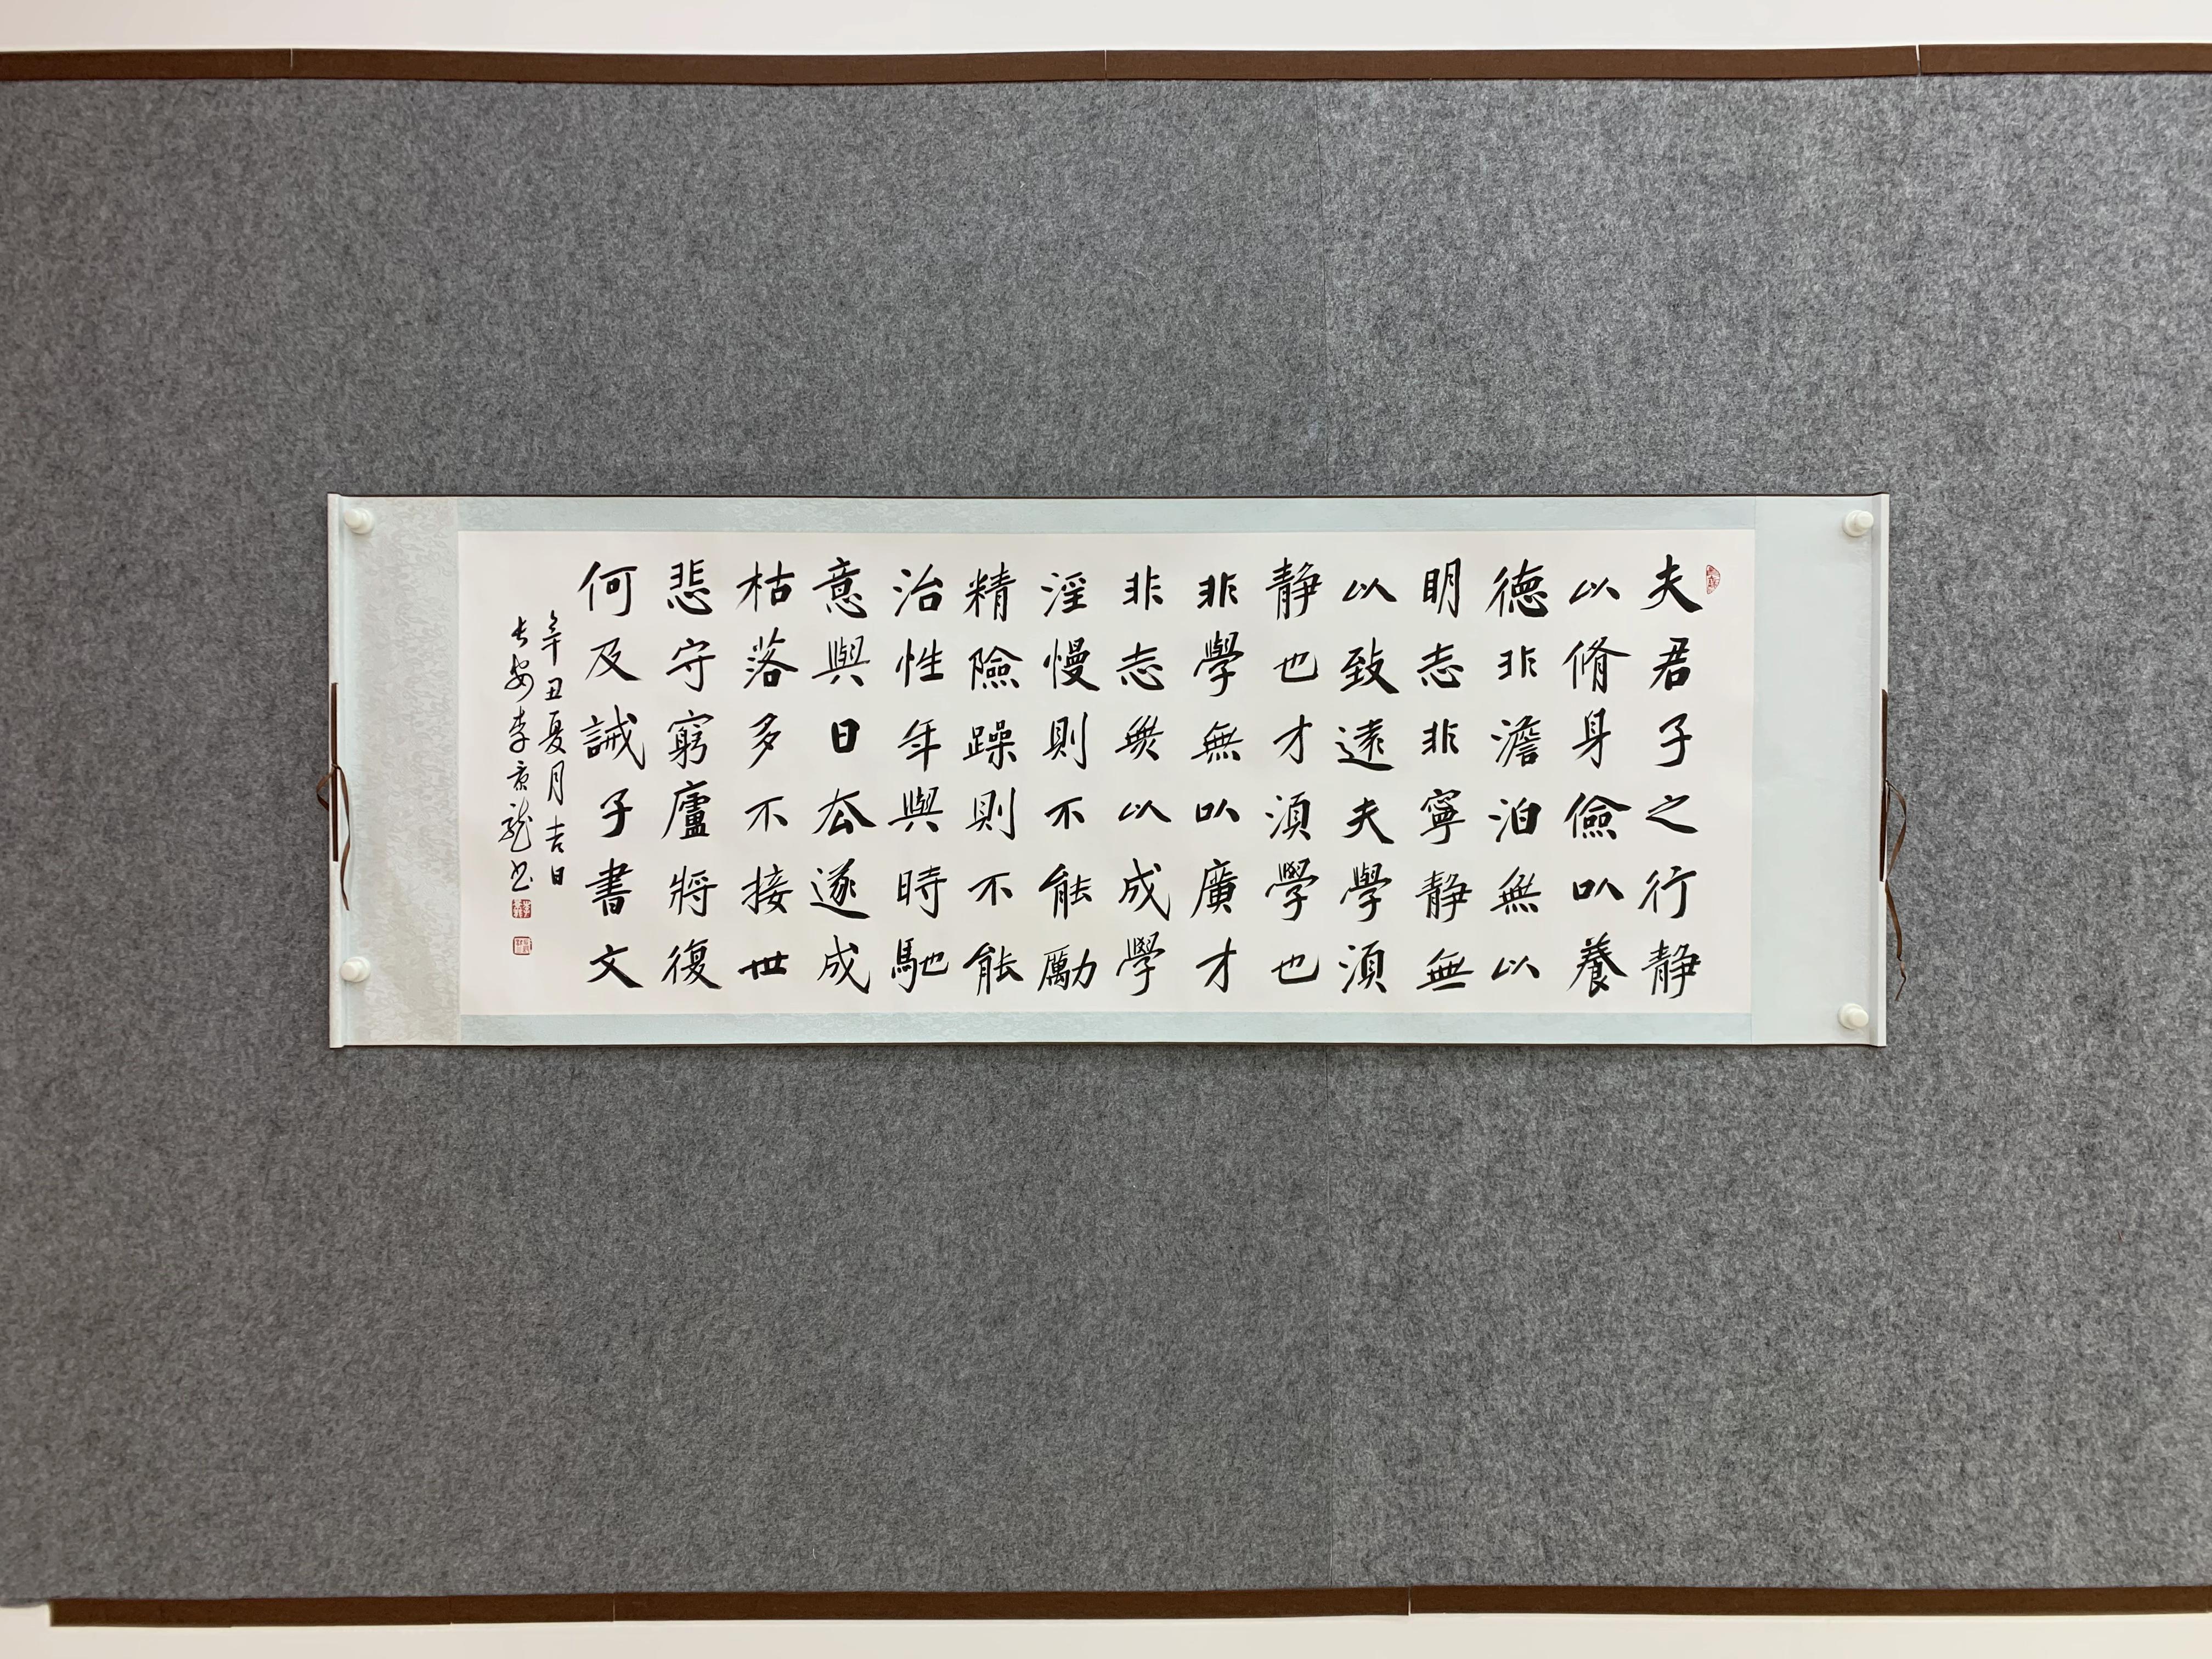 夫君子之行静
以脩身儉以養
德非澹泊無以
明志非寧静無
以致遠夫學須
静也才須學也
非學無以廣才
非志無以成學
淫慢則不能勵
精險躁則不能
治性年與時馳
意與日去遂成
枯落多不接世
悲守窮廬將復
何及誡子書文
辛丑夏月吉日
长安李京龍书